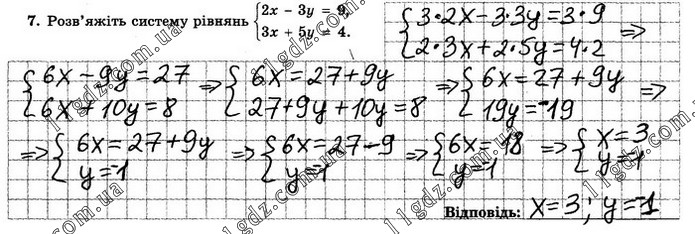 7. Розв'яжіть систему рівнянь { 2x − 3y = 9,
3x + 5y = 4.
{ 3·2x − 3·3y = 3·9
2·3x + 2·5y = 4·2 =>
{ 6x − 9y = 27
6x + 10y = 8 => { 6x = 27 + 9y
27 + 9y + 10y = 8 => { 6x = 27 + 9y
19y = −19 =>
=> { 6x = 27 + 9y
y = −1 => { 6x = 27 − 9
y = −1 => { 6x = 18
y = −1 => { x = 3
y = −1
Відповідь: x = 3; y = −1
11gdz.com.ua